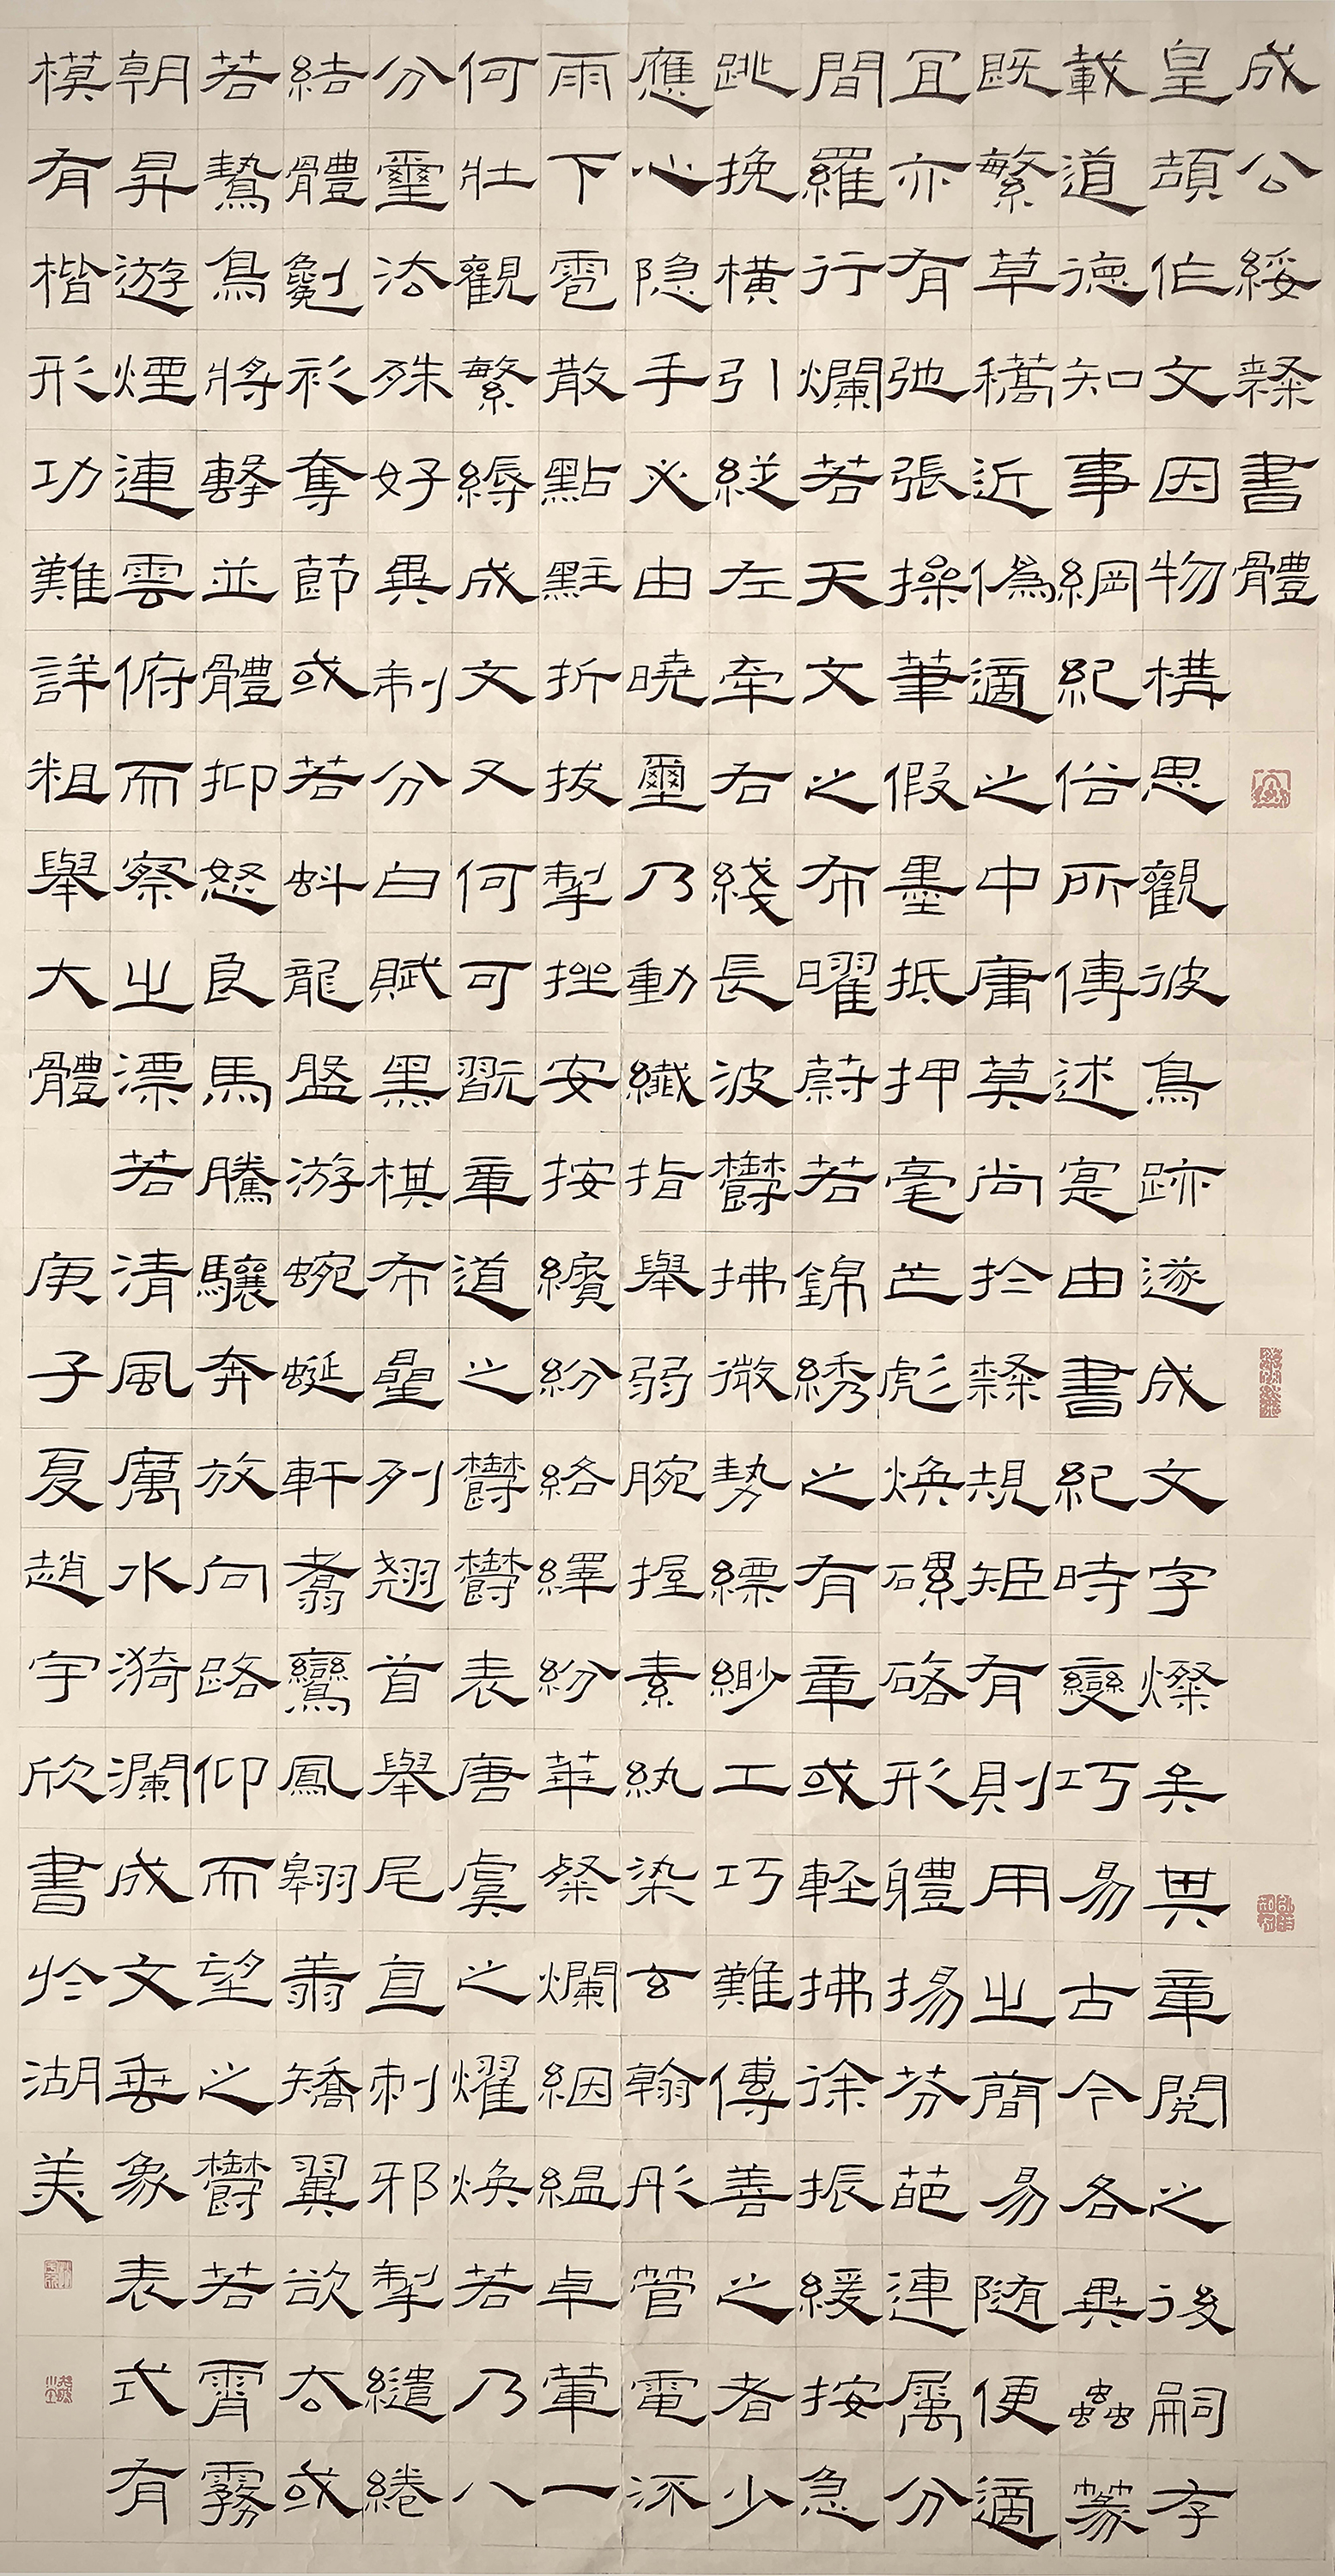 成公綏隸書體
皇頡作文因物構思觀彼鳥跡遂成文字燦矣其章閱之後嗣存
載道德知事綱紀俗所傳述寔由書紀時變巧易古今各異蟲篆
既繁草藁近偽適之中庸莫尚於隸規矩有則用之簡易隨便適
宜亦有弛張操筆假墨抵押毫芒彪煥磥硌形體揚芬葩連屬分
間羅行爛若天文之布曜蔚若錦綉之有章或輕拂徐振緩按急
跳挽橫引縱左牽右綫長波鬱拂微勢縹緲工巧難傳善之者少
應心隱手必由曉璽乃動纖指舉弱腕握素紈染玄翰彤管電流
雨下雹散點黈折拔掣挫安按繽紛絡繹紛華粲爛絪縕卓犖一
何壯觀繁縟成文又何可翫章道之鬱鬱表唐虞之燿煥若乃八
分璽法殊好異制分白賦黑棋布星列翹首舉尾直刺邪掣繾綣
結體劖衫奪節或若虯龍盤游蜿蜒軒翥鸞鳳翱翔矯翼欲去或
若鷙鳥將擊並體抑怒良馬騰驤奔放向路仰而望之鬱若霄霧
朝昇遊煙連雲俯而察之漂若清風厲水漪瀾成文垂象表式有
模有楷形功難詳粗舉大體 庚子夏趙宇欣書於湖美